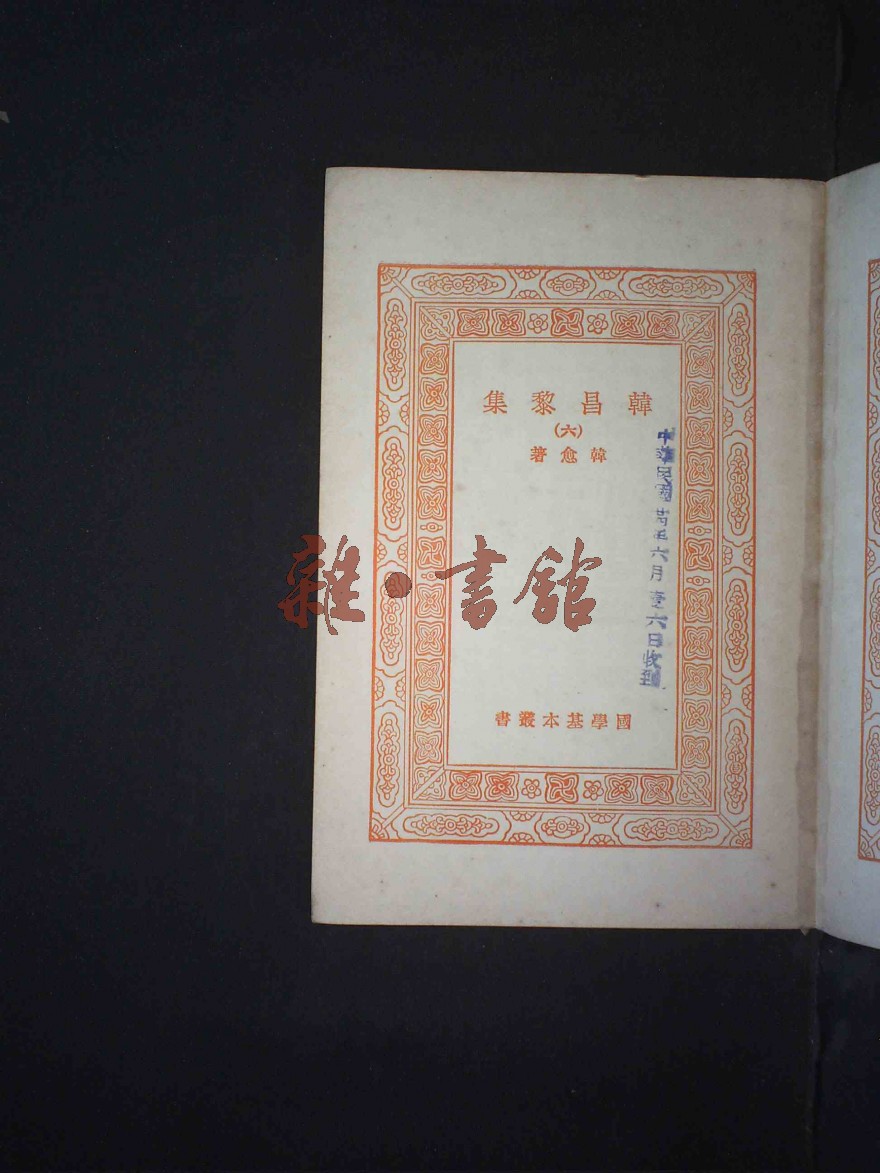 韓昌黎集
(六)
韓愈著
國學基本叢書
中華民國 六月 六日收到
雜·書館